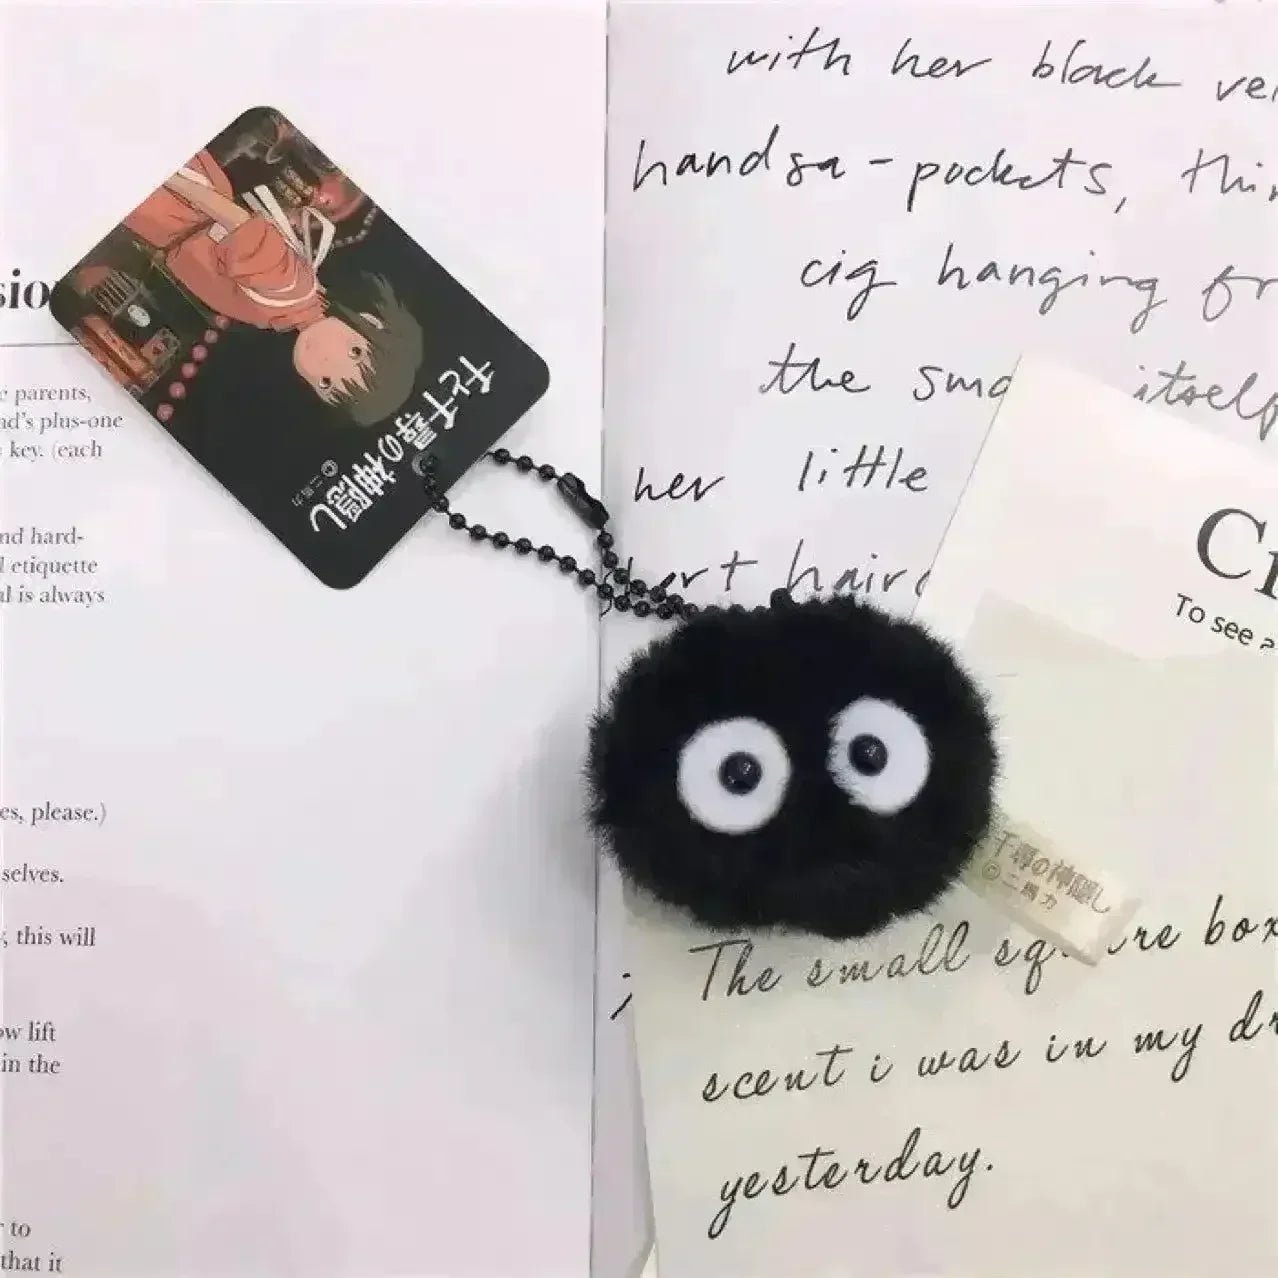 e parents,
nd's plus-one
key. (each
nd hard-
l etiquette
al is always
es, please.)
selves.
, this will
ow lift
in the
to
that it
千と千尋の神隠し
©二馬力
with her black
handsa-pockets,
cig hanging
the itself
her little
hair
To see
千尋の神隠し
©二馬力
The small square box
scent i was in my
yesterday.